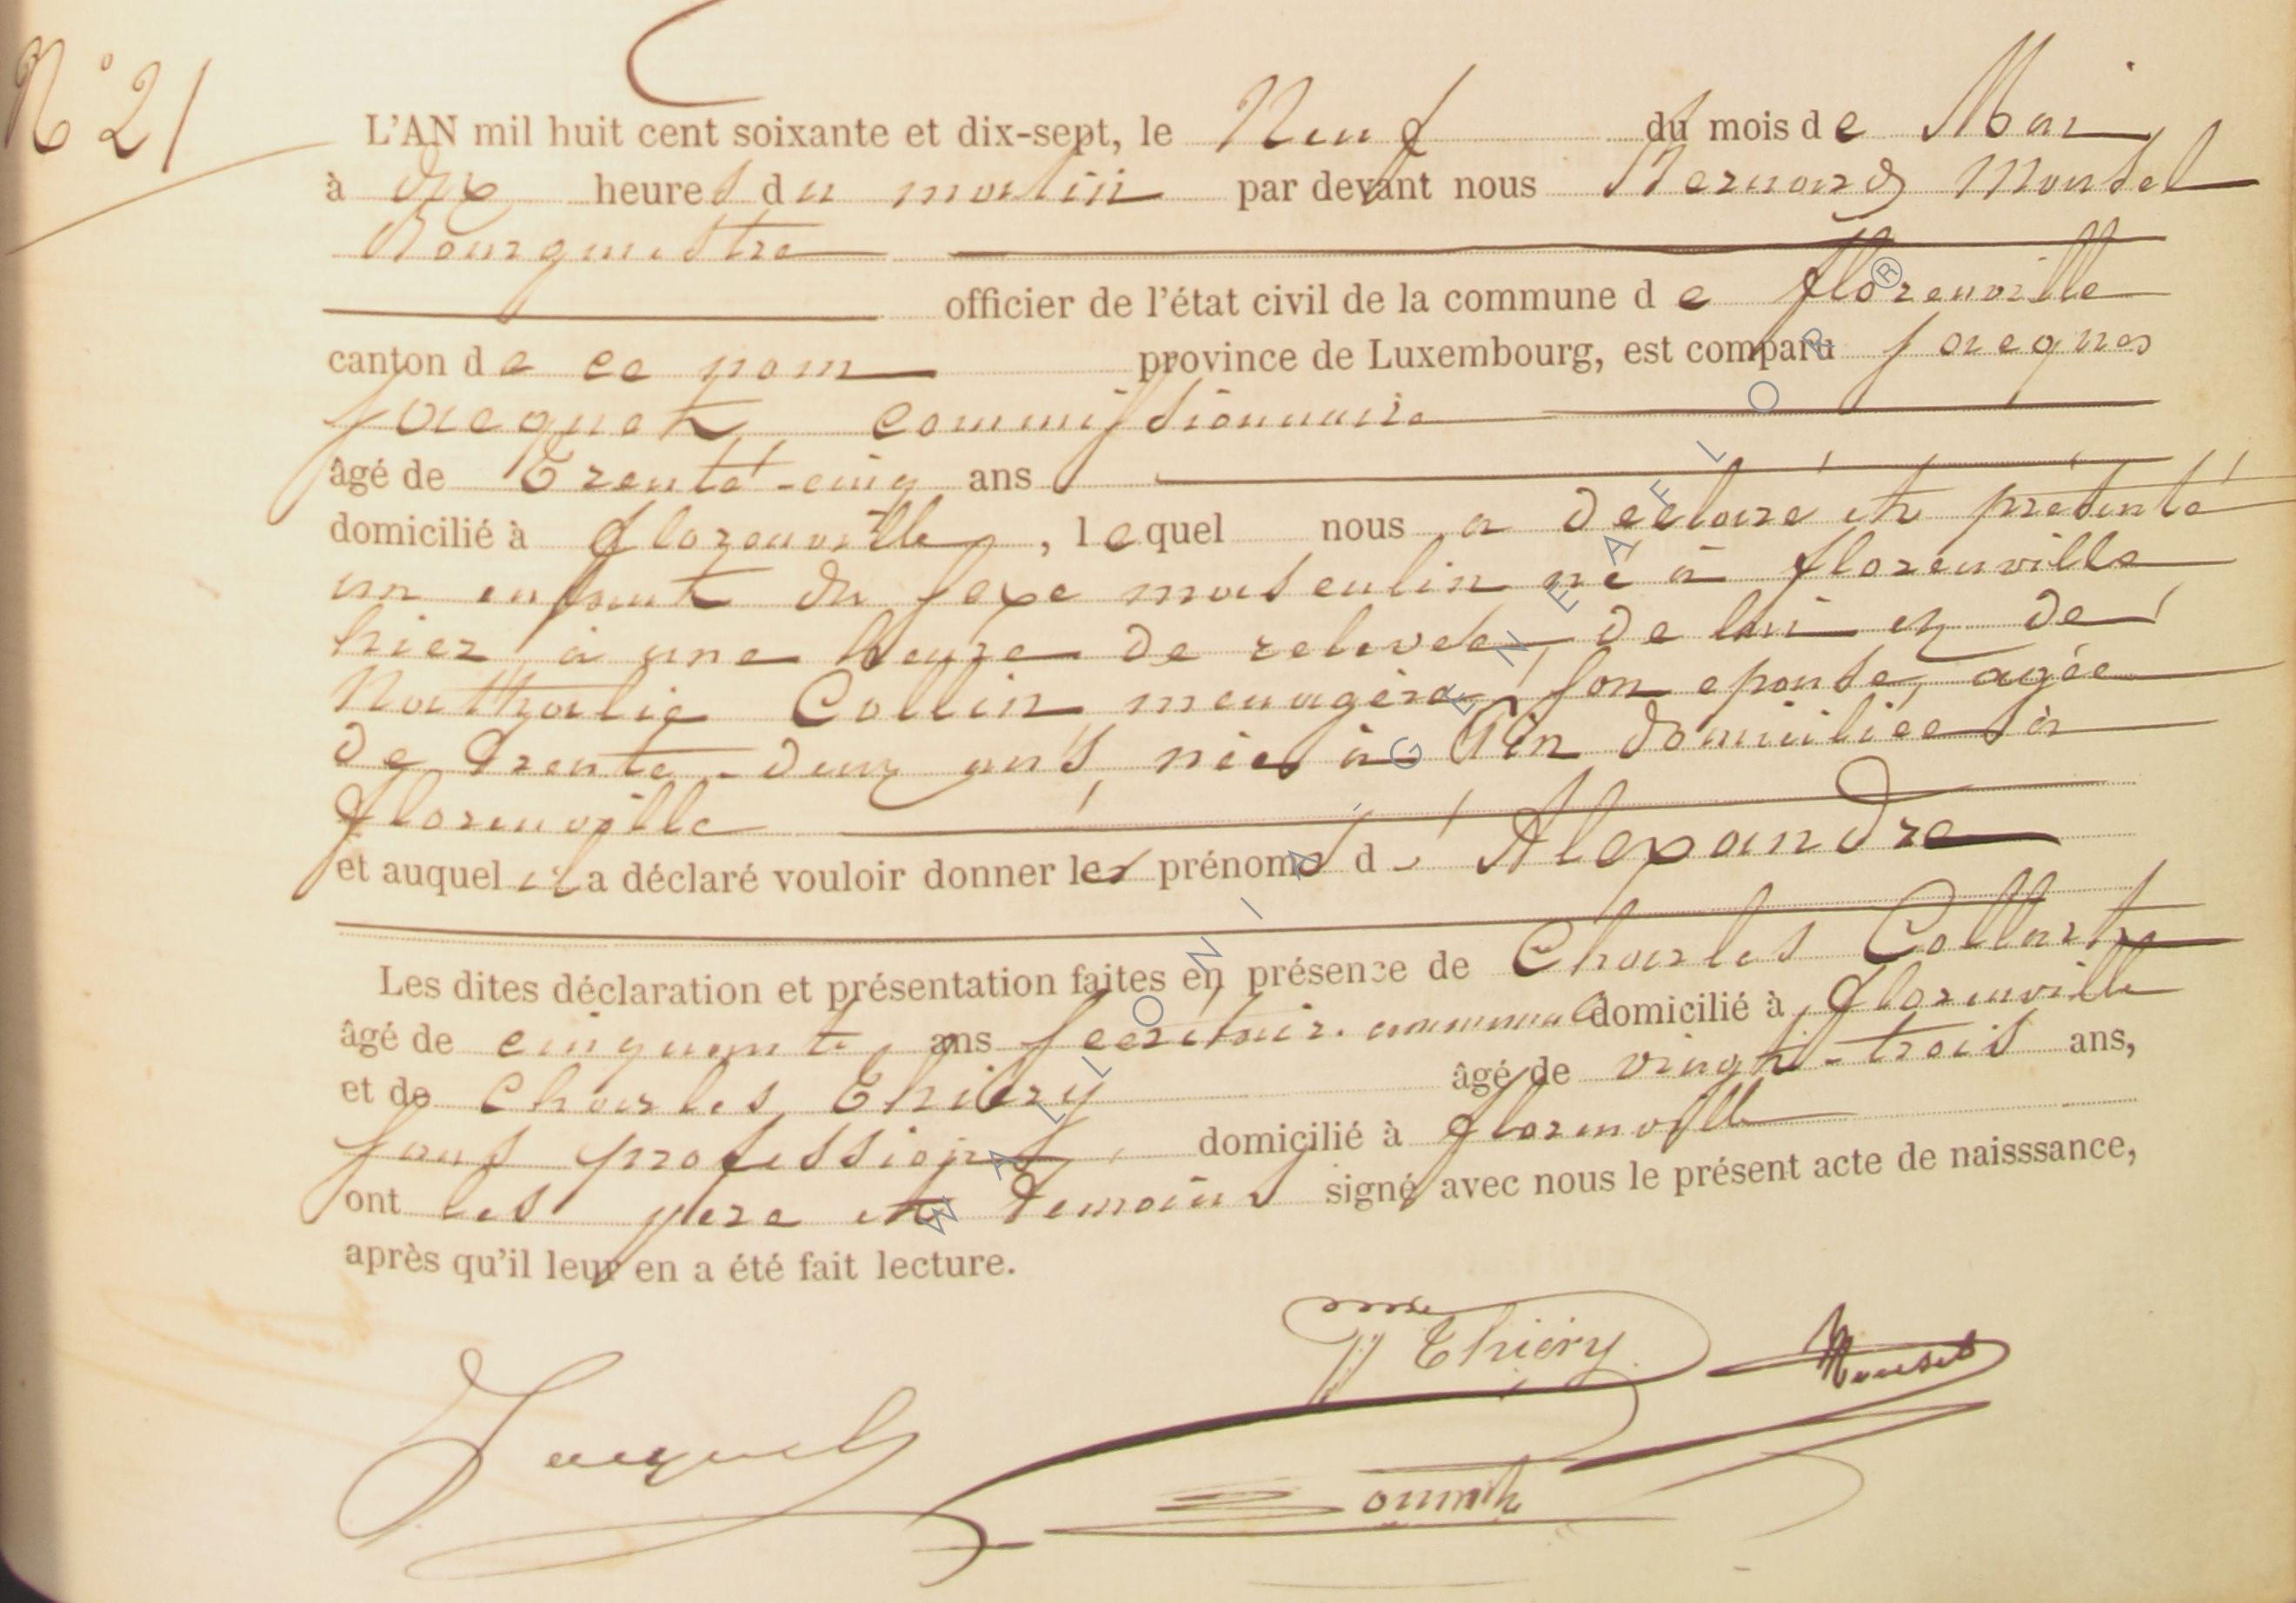 N° 21
L'AN mil huit cent soixante et dix-sept, le Neuf du mois de Mai
à dix heures du matin par devant nous Bernard Mousel
Bourgmestre
officier de l'état civil de la commune de florenville
canton de ce nom province de Luxembourg, est comparu Jacques
Jacquet, commissionnaire
âgé de Trente-cinq ans
domicilié à florenville, lequel nous a déclaré et présenté
un enfant du sexe masculin né à florenville
hier à une heure de relevée, de lui et de
Nathalie Collin ménagère, son épouse, agée
de Trente-deux ans, née à domiciliée à
florenville
et auquel il a déclaré vouloir donner les prénoms d' Alexandre
Les dites déclaration et présentation faites en présence de Charles
âgé de cinquante ans secrétair. communal domicilié à florenville
et de Charles Thiéry âgé de vingt-trois ans,
sans profession, domicilié à florenville
ont les père et témoins signé avec nous le présent acte de naisssance,
après qu'il leur en a été fait lecture.
Thiéry Mousel
Jacquet
WALLONIN. GENEAFLOR®